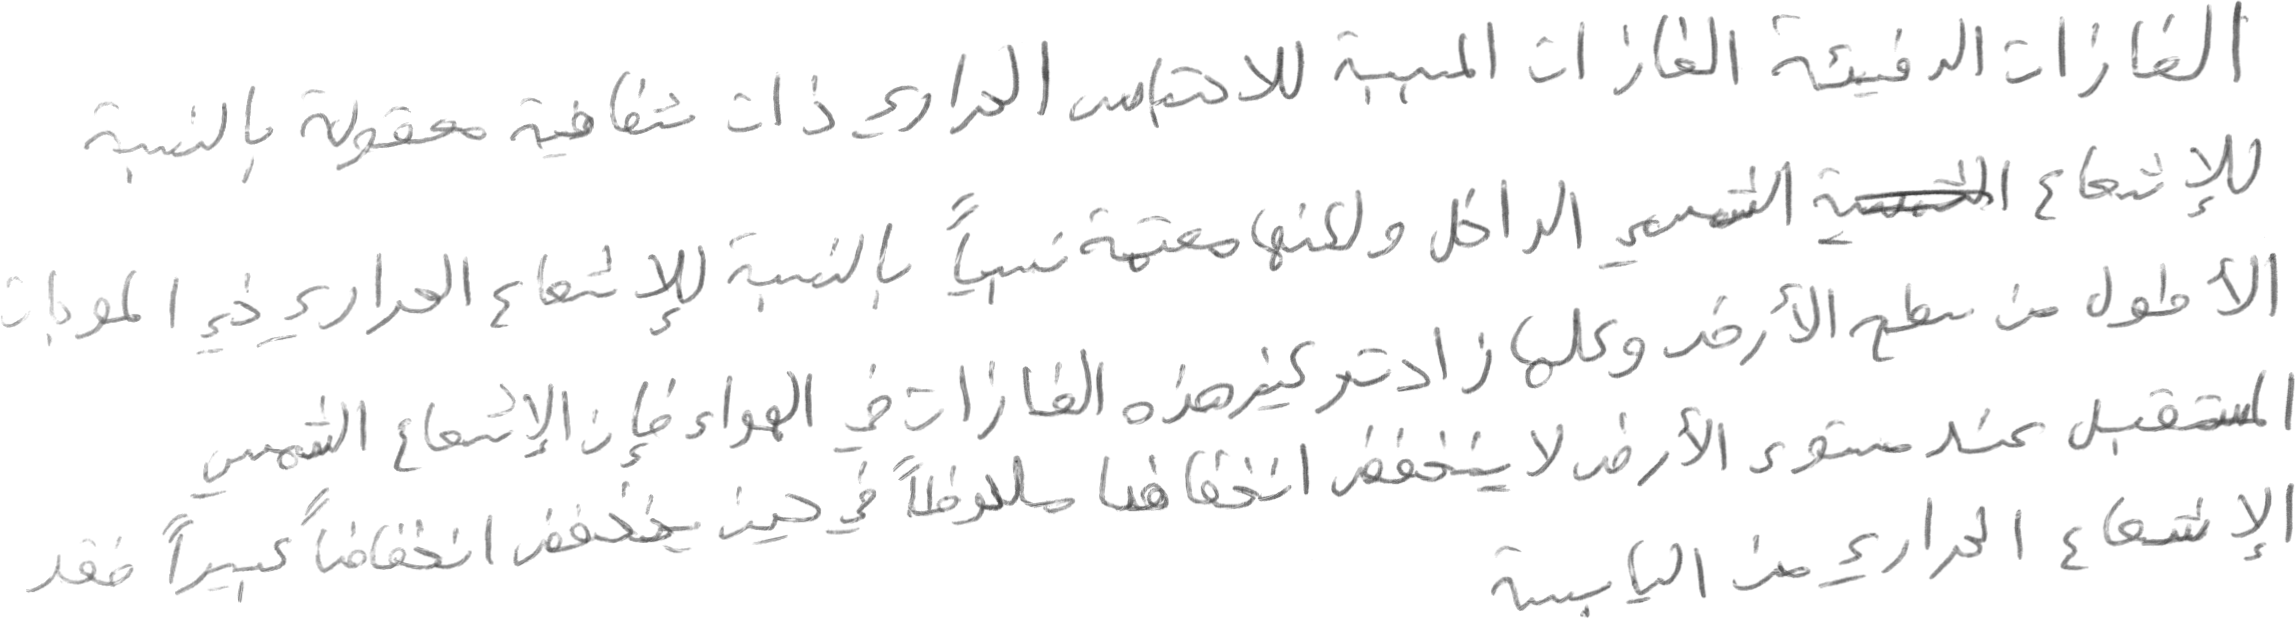 الغازات الدفيئة الغازات المسببة للاحتباس الحراري ذات شفافية معقولة بالنسبة
للإشعاع الشمسي الداخل ولكنها معتمة نسبياً بالنسبة للإشعاع الحراري ذي الموجات
الأطول من سطح الأرض وكلما زاد تركيز هذه الغازات في الهواء فإن الإشعاع الشمسي
المستقبل عند مستوى الأرض لا ينخفض انخفاضا ملحوظاً في حين ينخفض انخفاضاً كبيراً فقد
الإشعاع الحراري من اليابسة